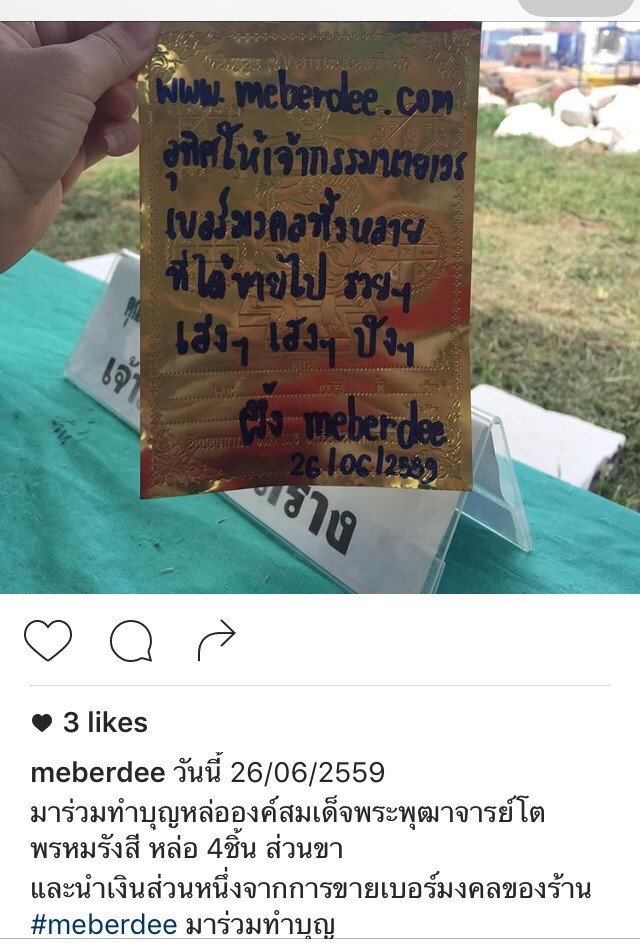 www.meberdee.com
อุทิศให้เจ้ากรรมนายเวร
เบอร์มงคลทั้งหลาย
ที่ได้ขายไป รวยๆ
เฮงๆ เฮงๆ ปังๆ
ผึ้ง meberdee
26/06/2559
เจ้า
3 likes
meberdee วันนี้ 26/06/2559
มาร่วมทำบุญหล่อองค์สมเด็จพระพุฒาจารย์โต
พรหมรังสี หล่อ 4ชิ้น ส่วนขา
และนำเงินส่วนหนึ่งจากการขายเบอร์มงคลของร้าน
#meberdee มาร่วมทำบุญ